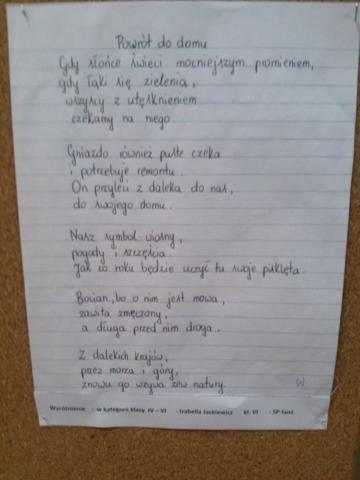 Powrót do domu
Gdy słońce świeci mocniejszym promieniem,
gdy łąki się zielenią,
wszyscy z utęsknieniem
czekamy na niego.
Gniazdo również puste czeka
i potrzebuje remontu.
On przyleci z daleka do nas,
do swojego domu.
Nasz symbol wiosny,
pogody i szczęścia.
Jak co roku będzie uczył tu swoje pisklęta.
Bocian, bo o nim jest mowa,
zawita zmęczony,
a długa przed nim droga.
Z dalekich krajów,
przez morza i góry,
znowu go wzywa zew natury.
W
Wyróżnienie - w kategorii klasy IV – VI - Izabella Jackiewicz kl. VI - SP